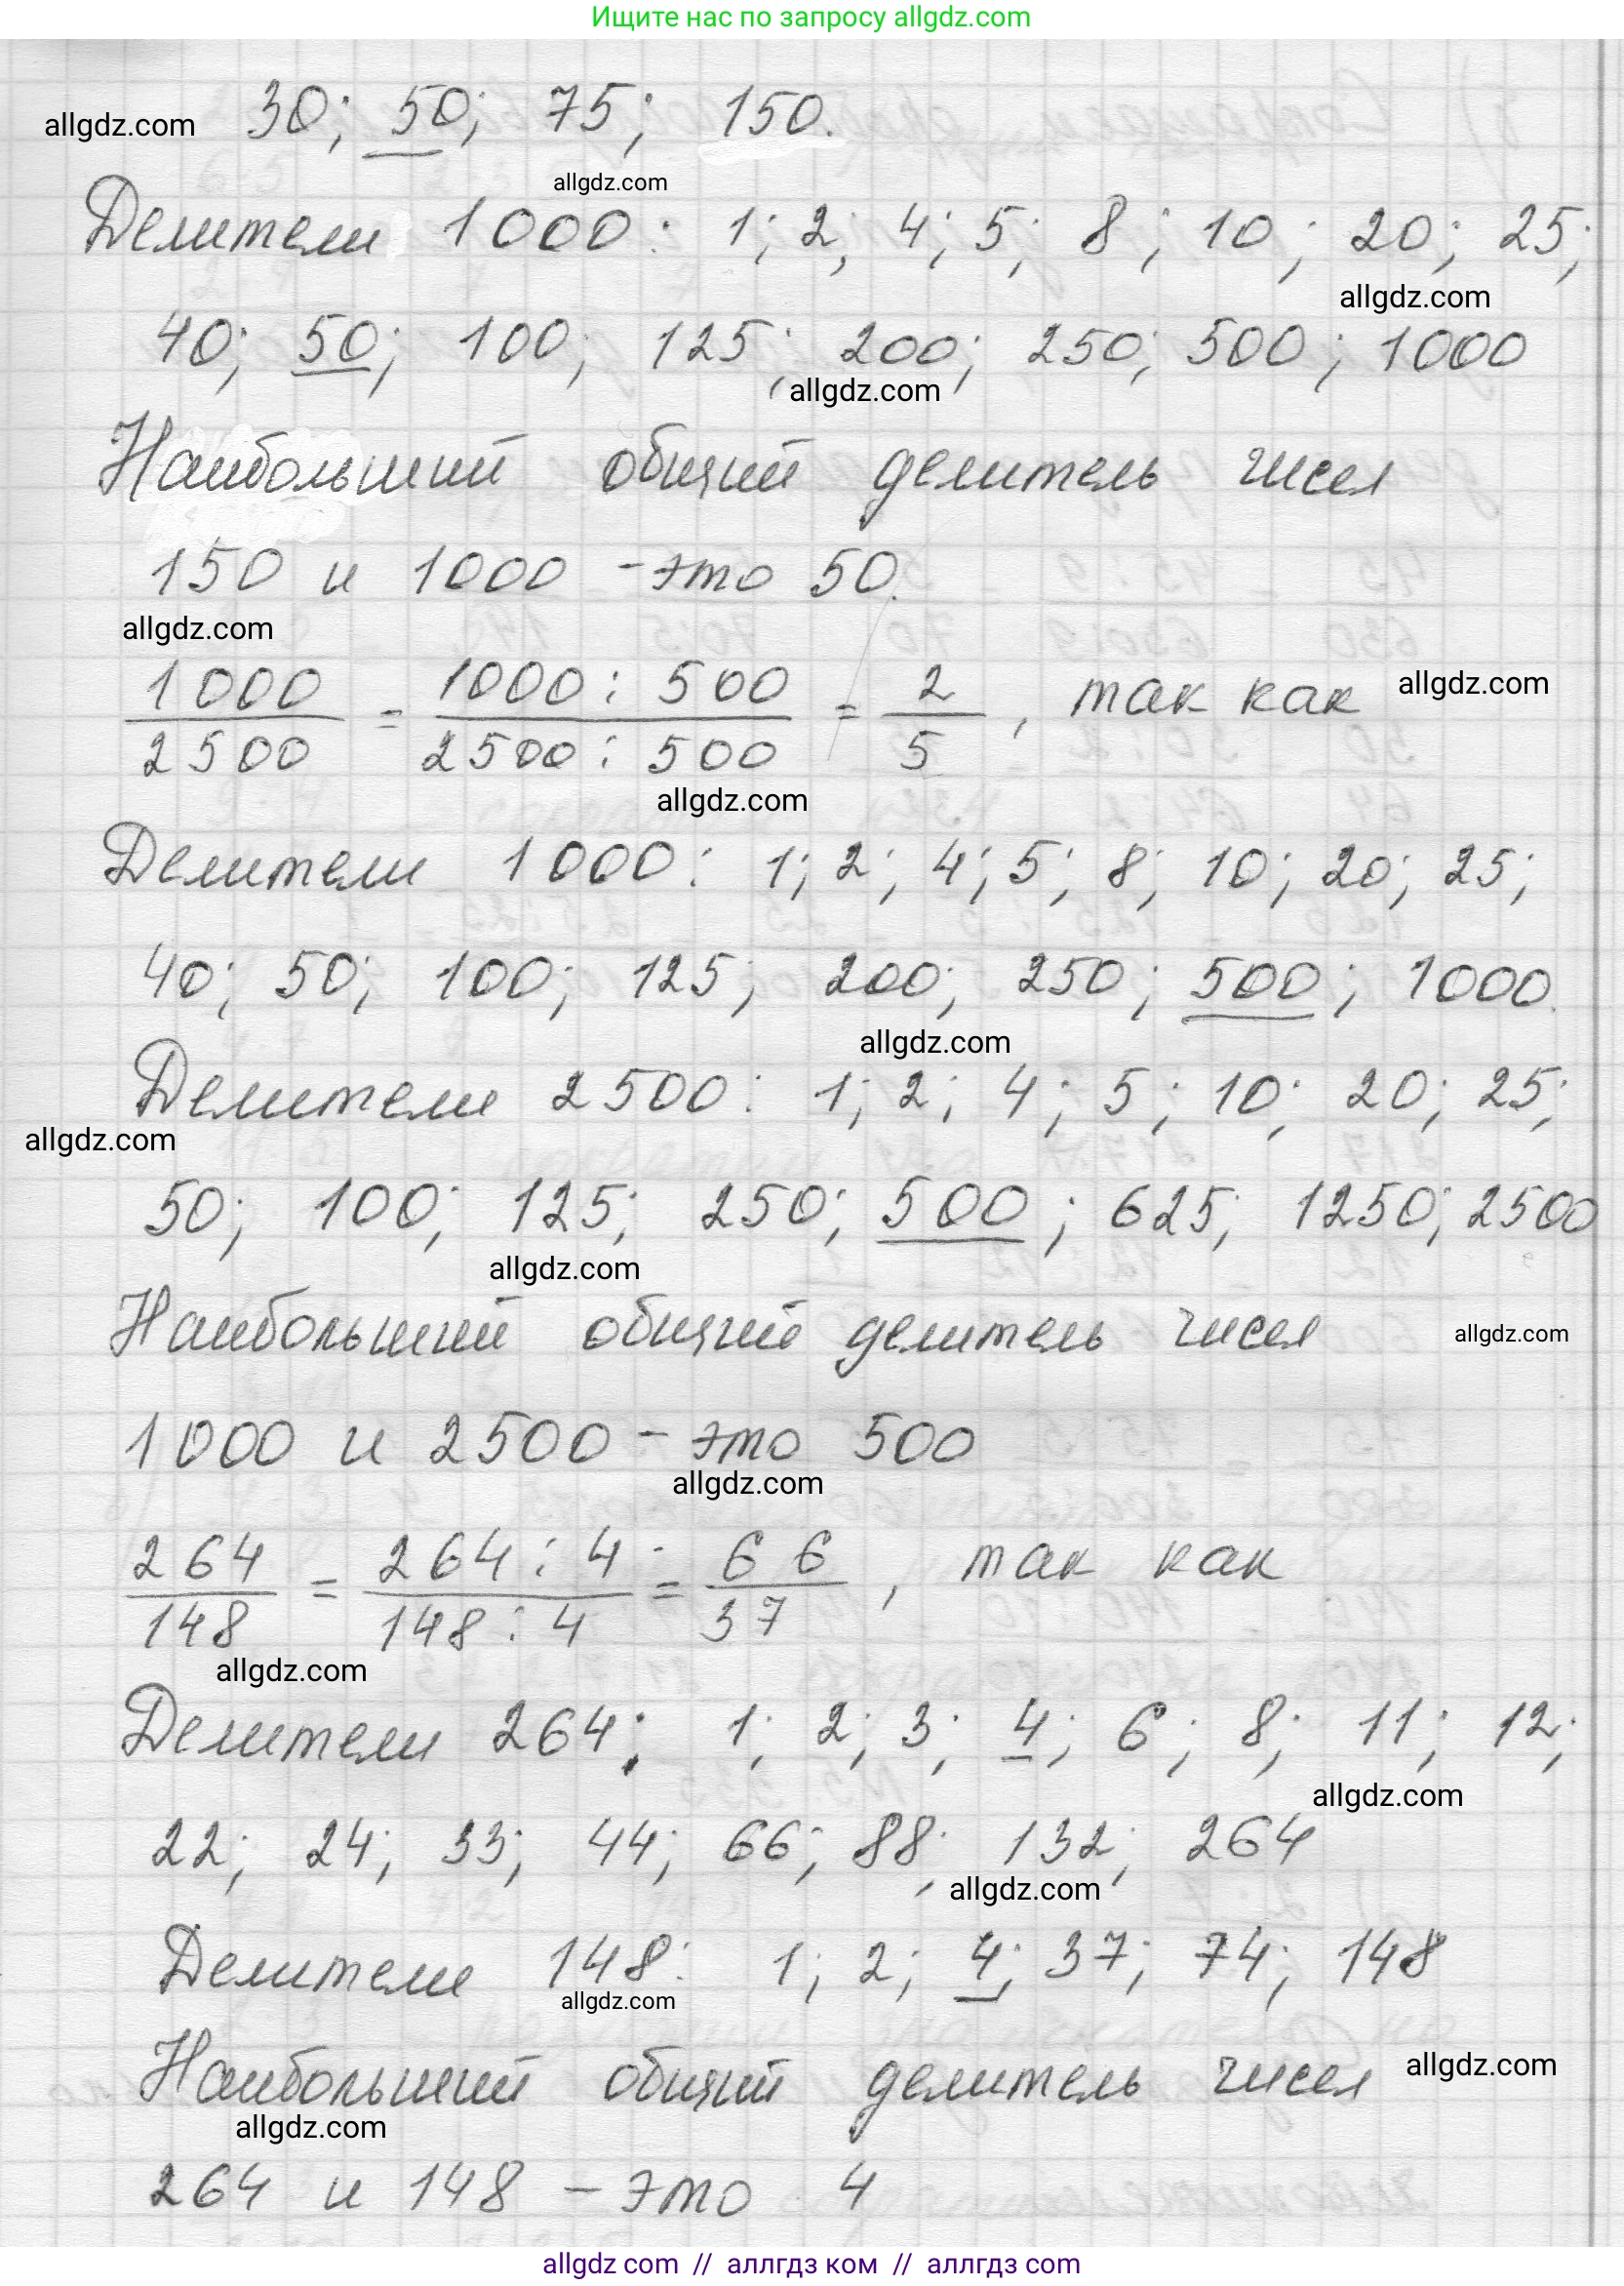 Ищите нас по запросу allgdz.com
allgdz.com 30; 50; 75; 150.
allgdz.com
Делители 1000: 1; 2; 4; 5; 8; 10; 20; 25;
allgdz.com
40; 50; 100; 125; 200; 250; 500; 1000
allgdz.com
Наибольший общий делитель чисел
150 и 1000 - это 50.
allgdz.com
1000/2500 = 1000:500/2500:500 = 2/5, так как allgdz.com
allgdz.com
Делители 1000: 1; 2; 4; 5; 8; 10; 20; 25;
40; 50; 100; 125; 200; 250; 500; 1000.
allgdz.com
Делители 2500: 1; 2; 4; 5; 10; 20; 25;
allgdz.com
50; 100; 125; 250; 500; 625; 1250; 2500
allgdz.com
Наибольший общий делитель чисел allgdz.com
1000 и 2500 - это 500
allgdz.com
264/148 = 264:4/148:4 = 66/37, так как
allgdz.com
Делители 264: 1; 2; 3; 4; 6; 8; 11; 12;
allgdz.com
22; 24; 33; 44; 66; 88; 132; 264
allgdz.com
Делители 148: 1; 2; 4; 37; 74; 148
allgdz.com
Наибольший общий делитель чисел allgdz.com
allgdz.com
264 и 148 - это 4
allgdz com // аллгдз ком // аллгдз com